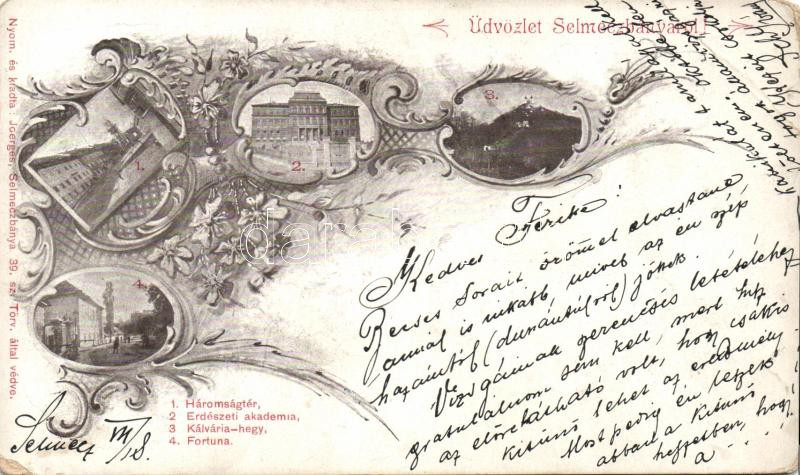 Üdvözlet Selmeczbányáról
Nyom. és kiadta: Joerges, Selmeczbánya 39. sz. Törv. által védve.
1.
2.
3.
4.
1. Háromságtér,
2 Erdészeti akademia,
3 Kálvária-hegy,
4. Fortuna.
Selmecz VII/18.
Kedves Ferike!
Becses sorait örömmel olvastam
annál is inkább, mivel az én szép
hazámból (dunántúlról) jöttek.
Vizsgáinak szerencsés letételéhez
gratulálnom sem kell, mert hisz
az előrelátható volt, hogy csakis
kitünő lehet az eredmény
Most pedig én teszek
abban a kitünő
helyzetben, hogy
a
darabanth